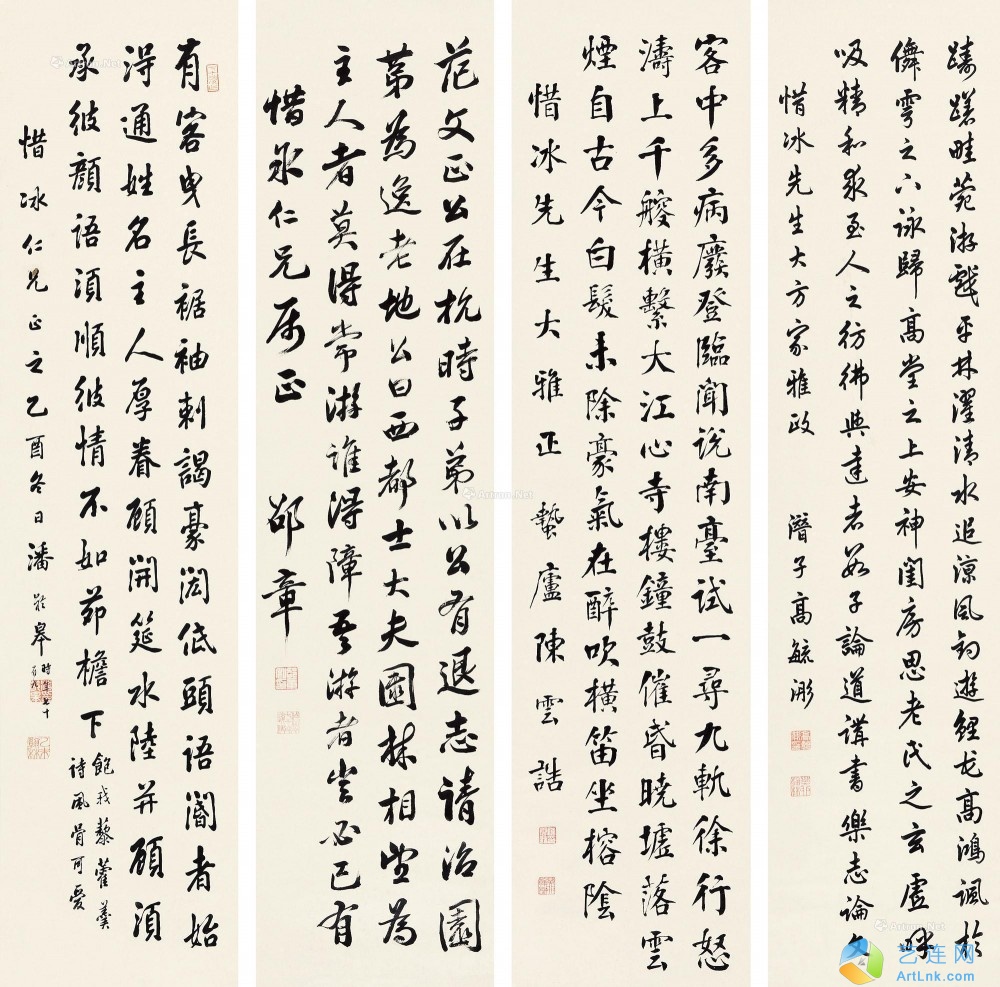 躊躇畦苑游戲平林濯清水追涼風釣遊鯉弋高鴻諷於
儛雩之下詠歸高堂之上安神閨房思老氏之玄虛呼
吸精和求至人之彷彿與達者數子論道講書 樂志論
惜冰先生大方家雅政 潛子高毓浵
客中多病廢登臨聞說南臺試一尋九軌徐行怒
濤上千艘橫繫大江心寺樓鐘鼓催昏曉墟落雲
煙自古今白髮未除豪氣在醉吹橫笛坐榕陰
惜冰先生大雅正 蟄廬陳雲誥
范文正公在杭時子弟以公有退志請治園
第為逸老地公曰西都士大夫園林相望為
主人者莫得常游誰得障吾游者豈必已有
惜冰仁兄屬正 邵章
有客曳長裾袖刺謁豪閎低頭語閽者始
得通姓名主人厚眷顧開筵水陸并顧須
承彼顏語須順彼情不如茆檐下
飽我藜藿羹
詩風骨可愛
惜冰仁兄正之乙酉冬日潘齡皋時年七十
艺连网
ArtLnk.com